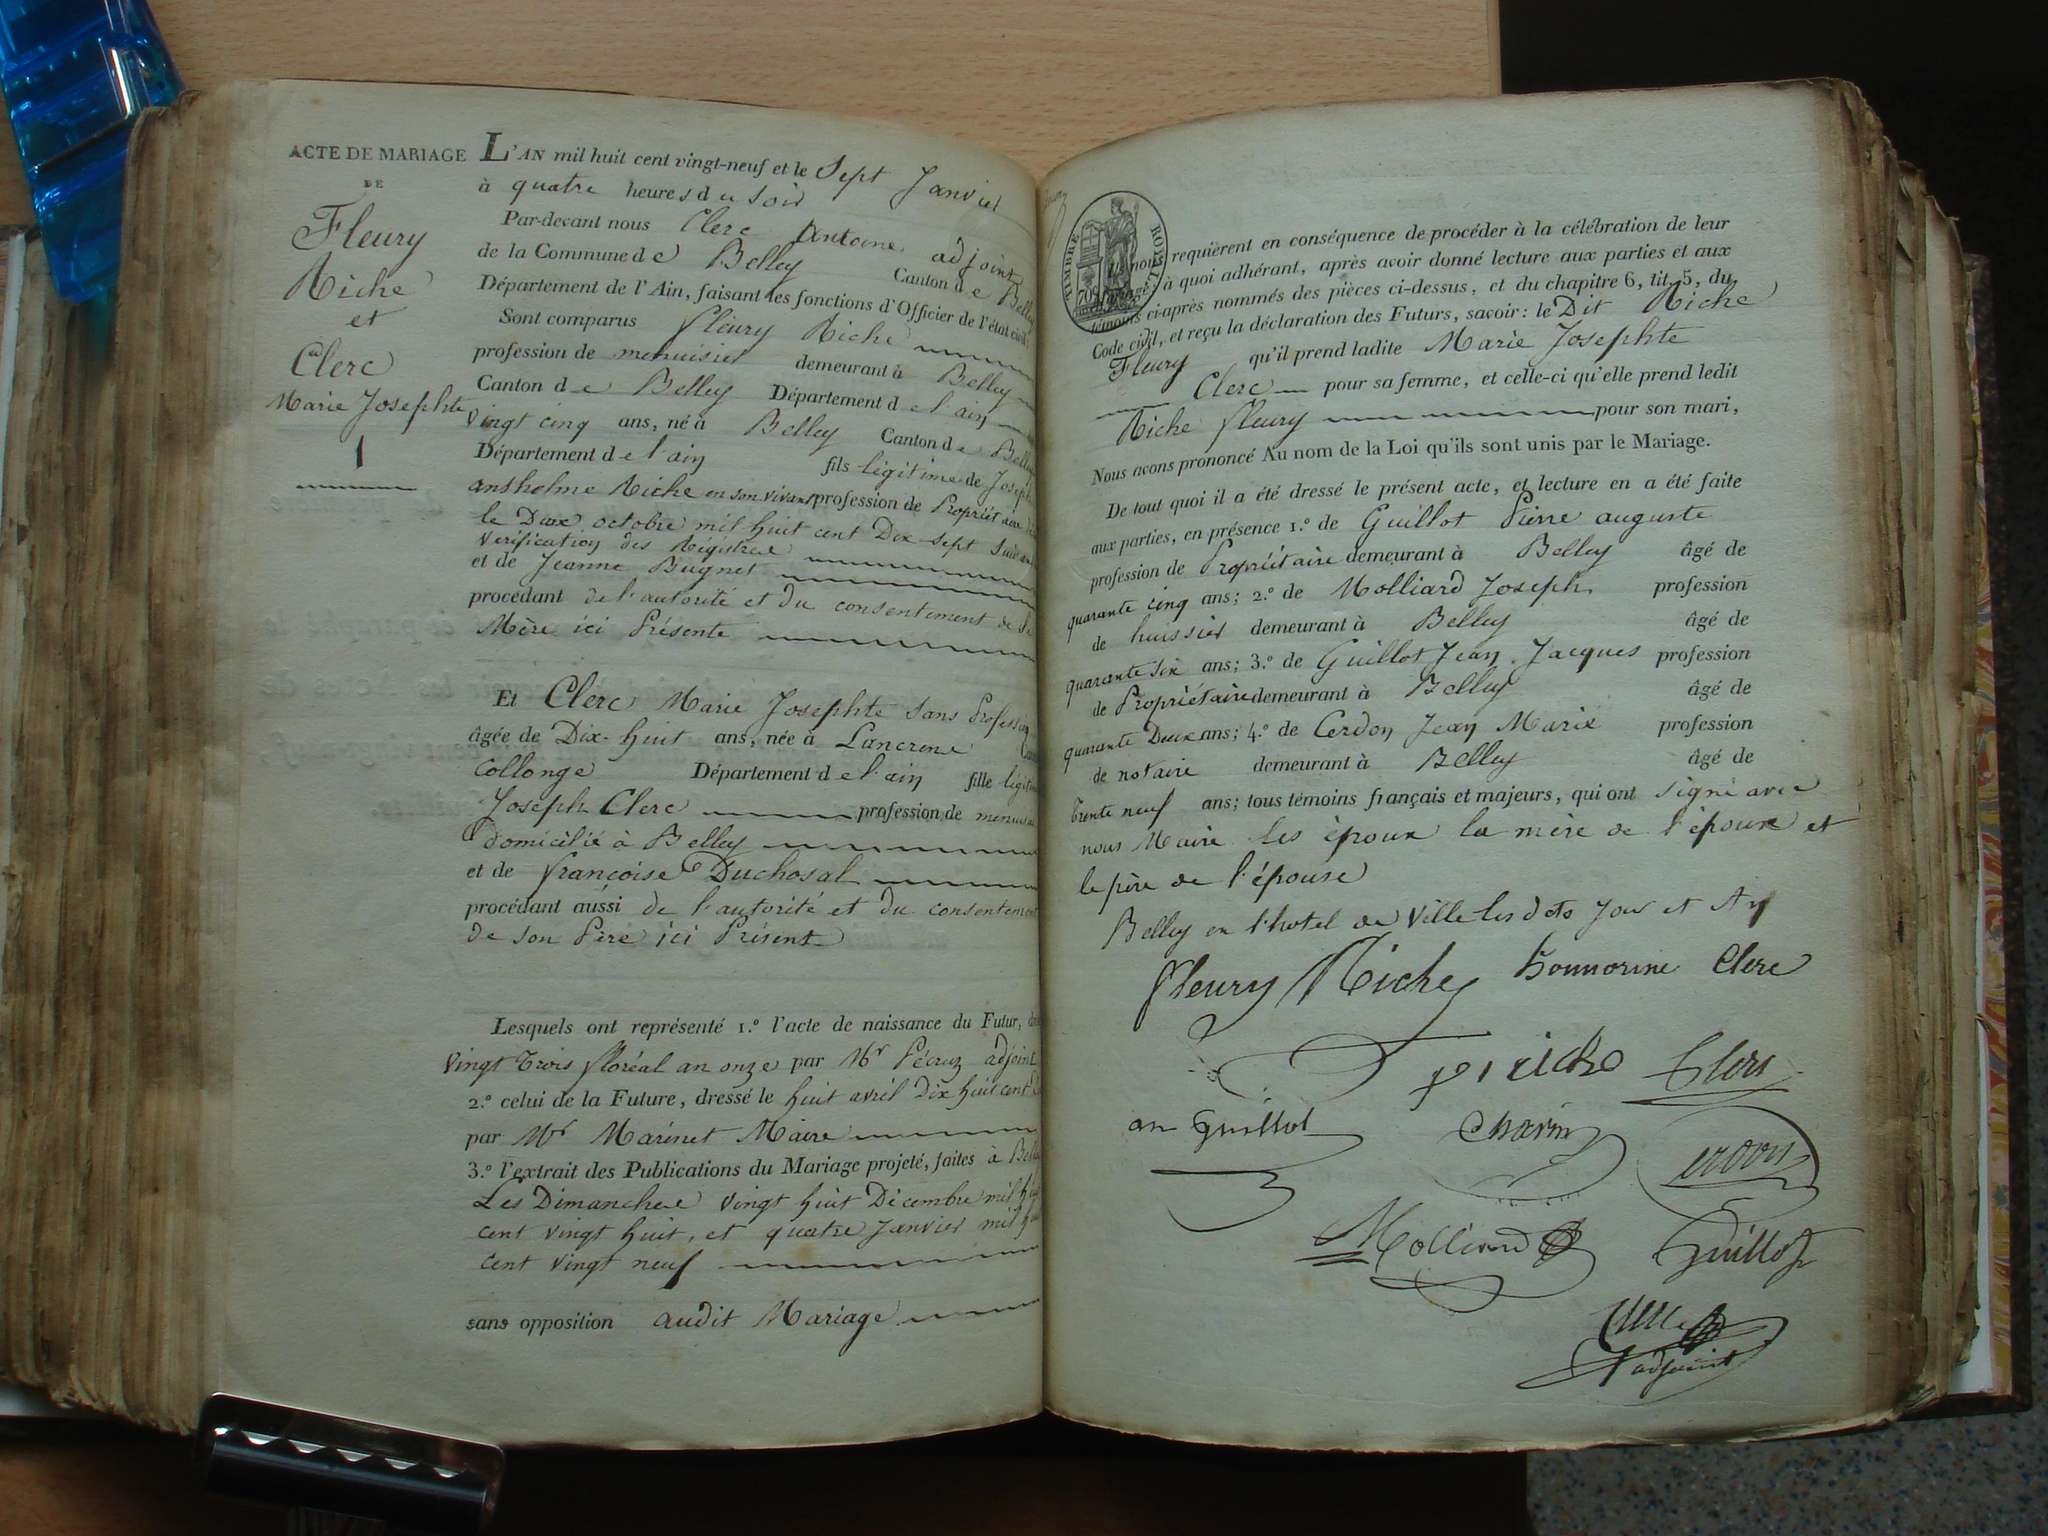 ACTE DE MARIAGE
DE
Fleury
Riche
et
Clerc
Marie Josephte
1
L'AN mil huit cent vingt-neuf et le Sept Janvier
à quatre heures du Soir
Par-devant nous Clerc Antoine adjoint
de la Commune de Belley Canton de Belley
Département de l'Ain, faisant les fonctions d'Officier de l'état civil
Sont comparus fleury Riche
profession de menuisier demeurant à Belley
Canton de Belley Département de l'ain
Vingt cinq ans, né à Belley Canton de Belley
Département de l'ain fils légitime de Joseph
ansthelme Riche en son vivant profession de Propriétaire
le Dix octobre mil huit cent Dix Sept Suivant
Verification des Régistre
et de Jeanne Bugnet
procédant de l'autorité et du consentement de Sa
Mère ici Présente
Et Clerc Marie Josephte Sans Profession
âgée de Dix-huit ans, née à Lancrene
Collonge Département de l'ain fille légitime
Joseph Clerc profession de menuisier
domicilié à Belley
et de francoise Duchosal
procédant aussi de l'autorité et du consentement
de Son Père ici Présent
Lesquels ont représenté 1.º l'acte de naissance du Futur,
Vingt Trois floréal an onze par Mr Pécruz adjoint
2.º celui de la Future, dressé le huit avril Dix huit cent
par Mr Marinet Maire
3.º l'extrait des Publications du Mariage projeté, faites à Belley
Les Dimanche Vingt huit Décembre mil huit
cent vingt huit, et quatre Janvier mil huit
cent vingt neuf
sans opposition audit Mariage
TIMBRE ROYAL
70
ils nous requièrent en conséquence de procéder à la célébration de leur
mariage, à quoi adhérant, après avoir donné lecture aux parties et aux
témoins ci-après nommés des pièces ci-dessus, et du chapitre 6, tit. 5, du
Code civil, et reçu la déclaration des Futurs, savoir: le Dit Riche
Fleury qu'il prend ladite Marie Josephte
Clerc pour sa femme, et celle-ci qu'elle prend ledit
Riche fleury pour son mari,
Nous avons prononcé Au nom de la Loi qu'ils sont unis par le Mariage.
De tout quoi il a été dressé le présent acte, et lecture en a été faite
aux parties, en présence 1.º de Guillot Pierre auguste
profession de Propriétaire demeurant à Belley âgé de
quarante cinq ans; 2.º de Molliard Joseph profession
de huissier demeurant à Belley âgé de
quarante Six ans; 3.º de Guillot Jean Jacques profession
de Propriétaire demeurant à Belley âgé de
quarante Deux ans; 4.º de Cerdon Jean Marie profession
de notaire demeurant à Belley âgé de
Trente neuf ans; tous témoins français et majeurs, qui ont signé avec
nous Maire les époux la mère de l'époux et
le père de l'épouse
Belley en l'hotel de Ville les dits Jour et An
Fleury Riche Honnorine Clerc
riche Clerc
Guillot
Molliard Guillot
adjoint